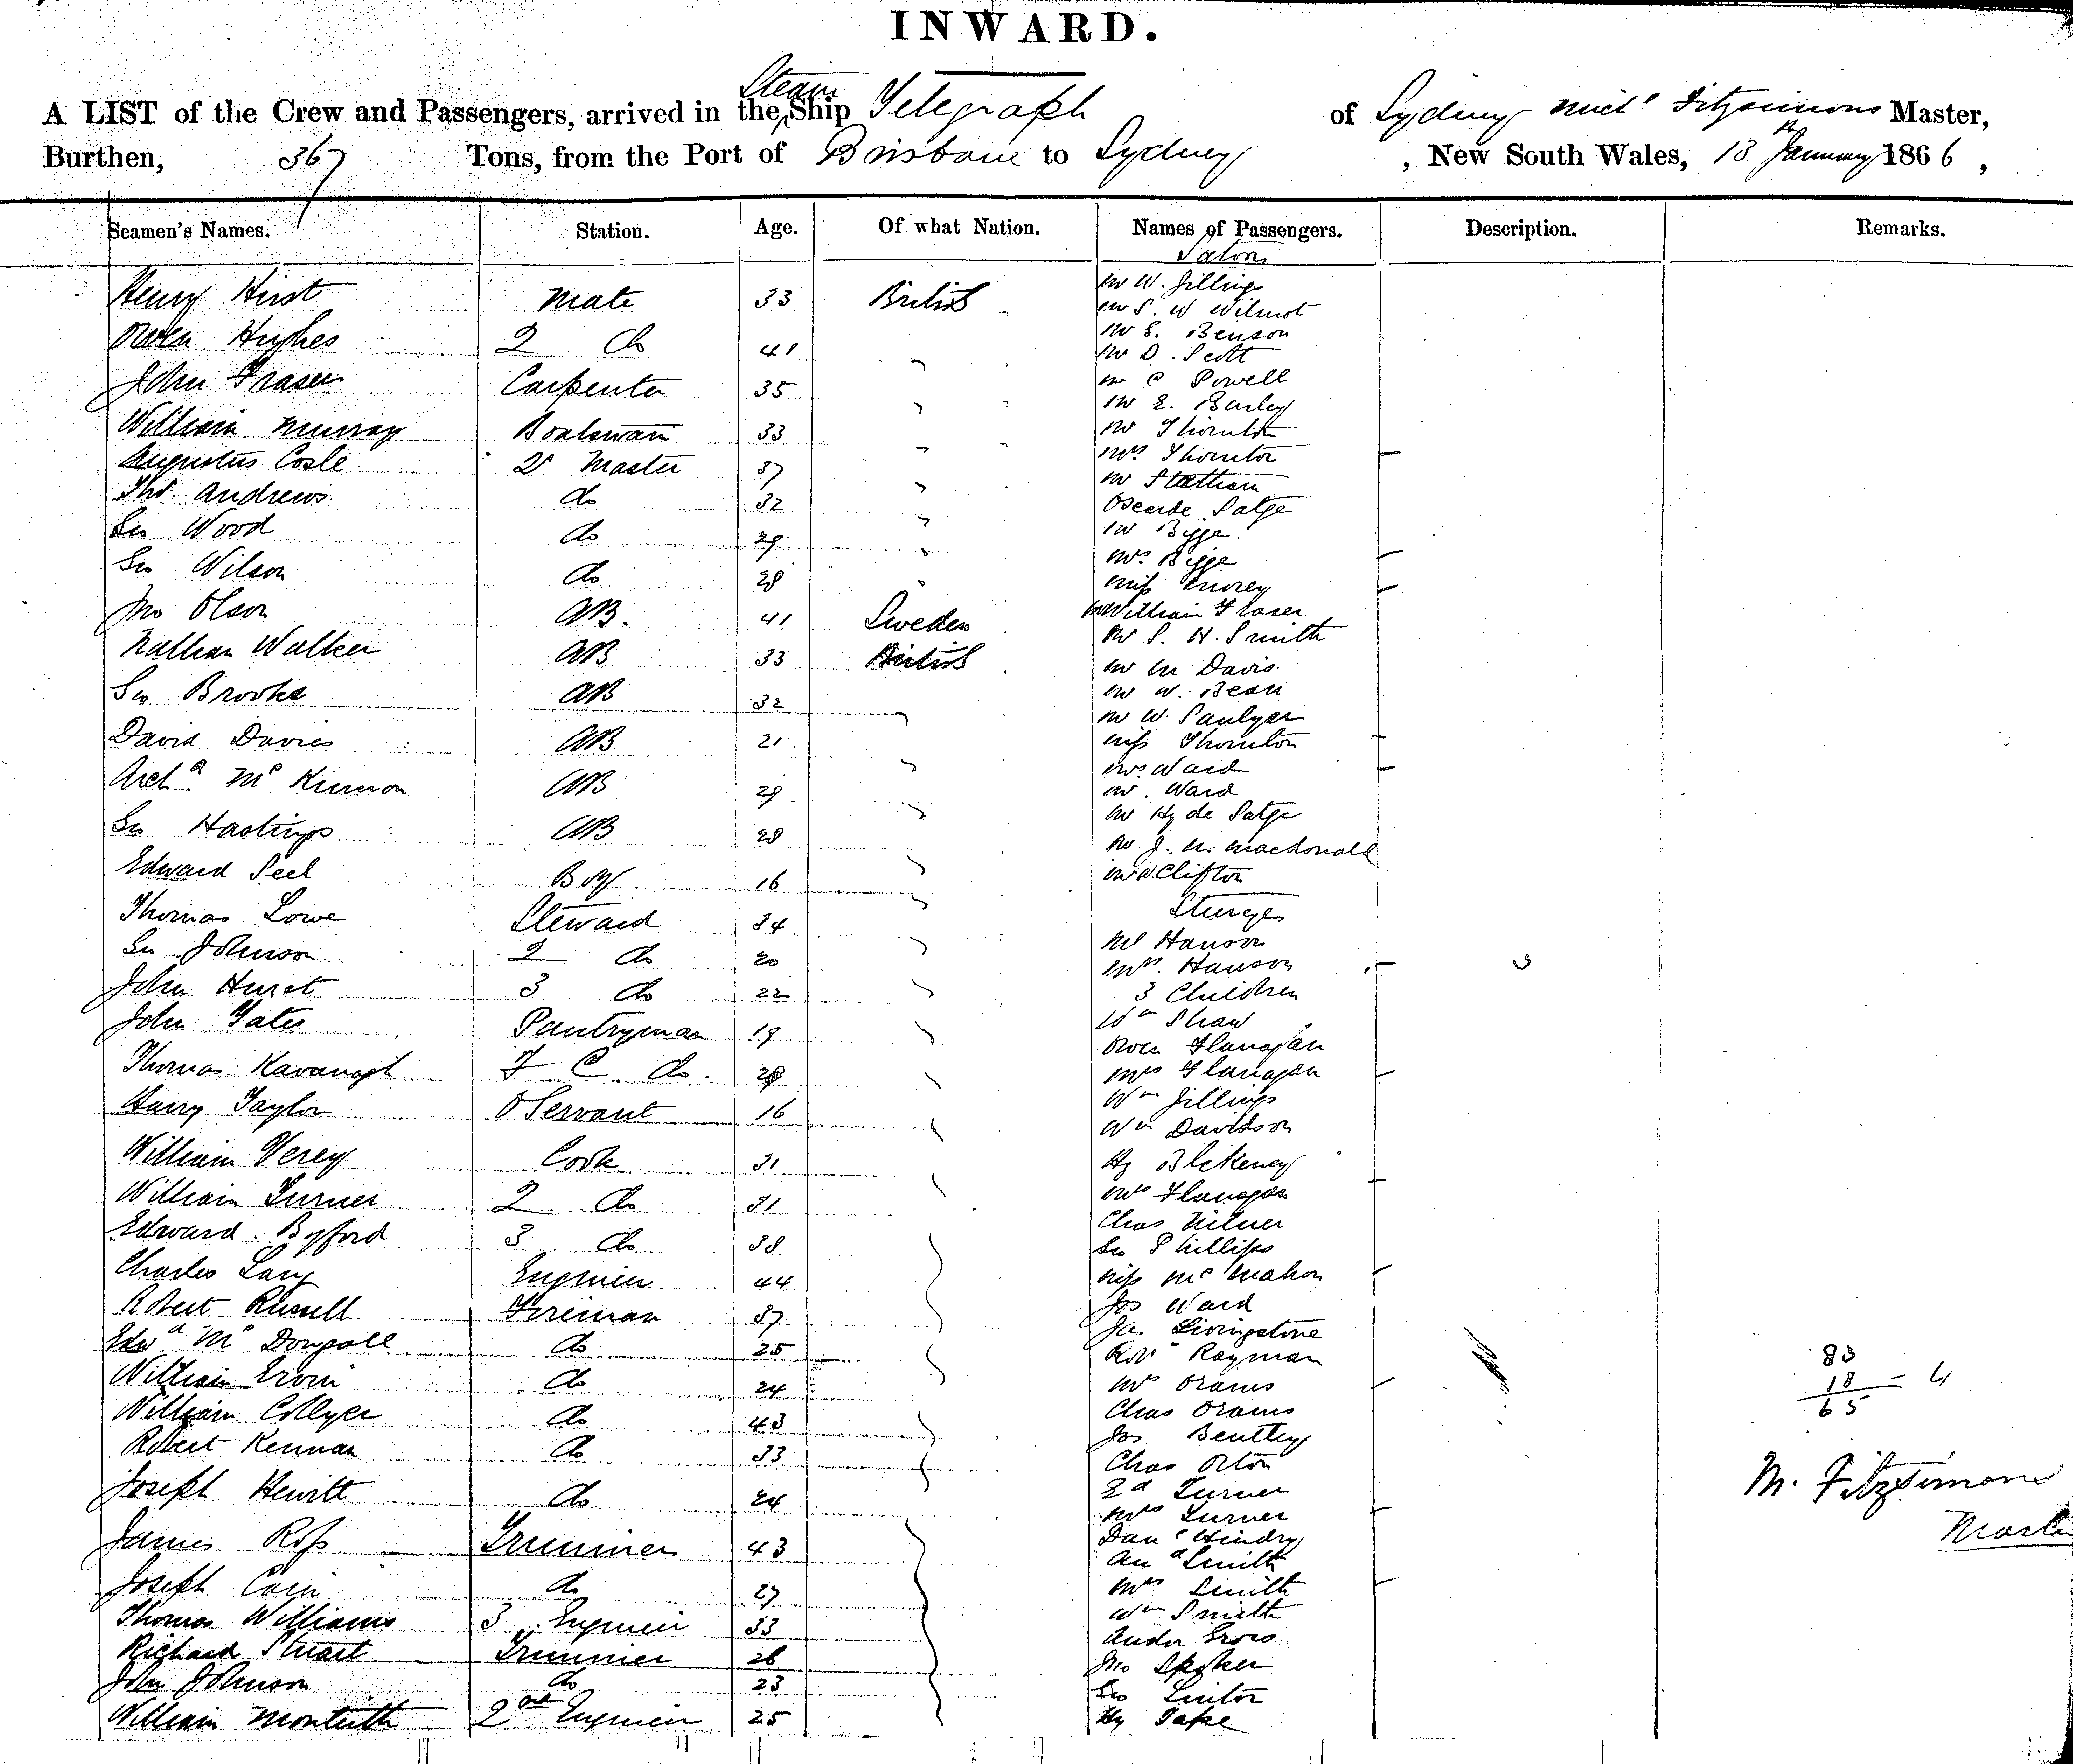 INWARD.
Steam
A LIST of the Crew and Passengers, arrived in the Ship Telegraph of Sydney Mich^l Fitzsimons Master,
Burthen, 367 Tons, from the Port of Brisbane to Sydney, New South Wales, 13 January 1866,
Seamen's Names. Station. Age. Of what Nation. Names of Passengers. Description. Remarks.
Henry Hirst Mate 33 British
Owen Hughes 2 do 41 "
John Fraser Carpenter 35 "
William Murray Boatswain 33 "
Augustus Cosle 2r Master 37 "
Thos Andrews do 32 "
Geo Wood do 29 "
Geo Wilson do 28 "
Jno Olson AB. 41 Sweden
Nathan Walker AB 33 British
Geo Brooks AB 32 "
David Davies AB 21 "
Arch^d Mc Kinnon AB 29 "
Geo Hastings AB 28 "
Edward Peel Boy 16 "
Thomas Lowe Steward 34 "
Geo Johnson 2 do 20 "
John Hurst 3 do 22 "
John Yates Pantryman 19 "
Thomas Kavanagh F C do. 28 "
Harry Taylor O Servant 16 "
William Verey Cook 31 "
William Turner 2 do 31
Edward Byford 3 do 38
Charles Lang Engineer 44
Robert Russell Fireman 37
Edw^d Mc Dougall do 25
William Ervin do 24
William Collyer do 43
Robert Kennan do 33
Joseph Hewitt do 24
James Ross Trimmer 43
Joseph Cain do 27
Thomas Williams 3 Engineer 33
Richard Stuart Trimmer 26
John Johnson do 23
William Monteith 2nd Engineer 25
Saloon
Mr W. Jillings
Mr S. W Wilmot
Mr E. Benson
Mr D. Scott
Mr C Powell
Mr E. Barley
Mr Thornton
Mrs Thornton
Mr Statham
Oscar de Satge
Mr Bigge
Mrs Bigge
Miss Morey
Mr William Fraser
Mr S. H. Smith
Mr M Davis
Mr W. Bean
Mr W.
Miss Thornton
Mrs Ward
Mr. Ward
Mr Hy de Satge
Mr J. N. Macdonald
Mr W Clifton
Steerage
Mr Hanson
Mrs. Hanson
3 Children
Wm Shaw
Owen Flanagan
Mrs Flanagan
Wm Jillings
Wm Davidson
Hy Blakeney
Mrs Flanagan
Chas Milner
Geo Phillips
Miss Mc Mahon
Jos Ward
Ja. Livingstone
Robt Rayman
Mrs Orams
Chas Orams
Jos Bentley
Chas Orton
Ed Turner
Mrs Turner
Danl Hindry
Smith
Mrs Smith
Wm Smith
Andw
Jno
Geo Linton
Hy Pake
83
18 - 4
65
M. Fitzsimons
Master